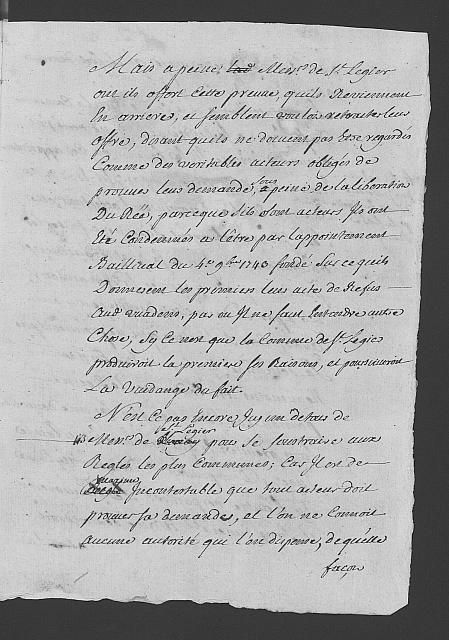 Mais a peine Mess.rs de S.t Legier
ont ils offert cette preuve, quils Reviennent
En arriere, et semblent vouloir retracter leur
offre, disant quils ne doivent pas Etre regardés
Comme des veritables acteurs obligés de
prouver leur demande, sous peine de la liberation
Du Réé, parceque s'ils sont acteurs Ils ont
Eté Condemnés a l'être par lappointement
Baillival du 4.e 9.bre 1743 fondé Sur ce quils
Donnerent les premiers leur acte de Refus
aud.t vuadens, par ou Il ne faut Entendre autre
Chose, Si Ce nest que la Commune de S.t Legier
produiroit la premiere ses Raisons, et poursuivroit
La Vuidange du fait.
N'est Ce pas Encore Icy un detour de
Mess.rs de S.t Legier pour se soustraire aux
Regles les plus Communes; Car Il est de
maxime Incontestable que tout acteur doit
prouver sa demande, et l'on ne Connoit
aucune autorité qui l'en dispense, de quelle
façon